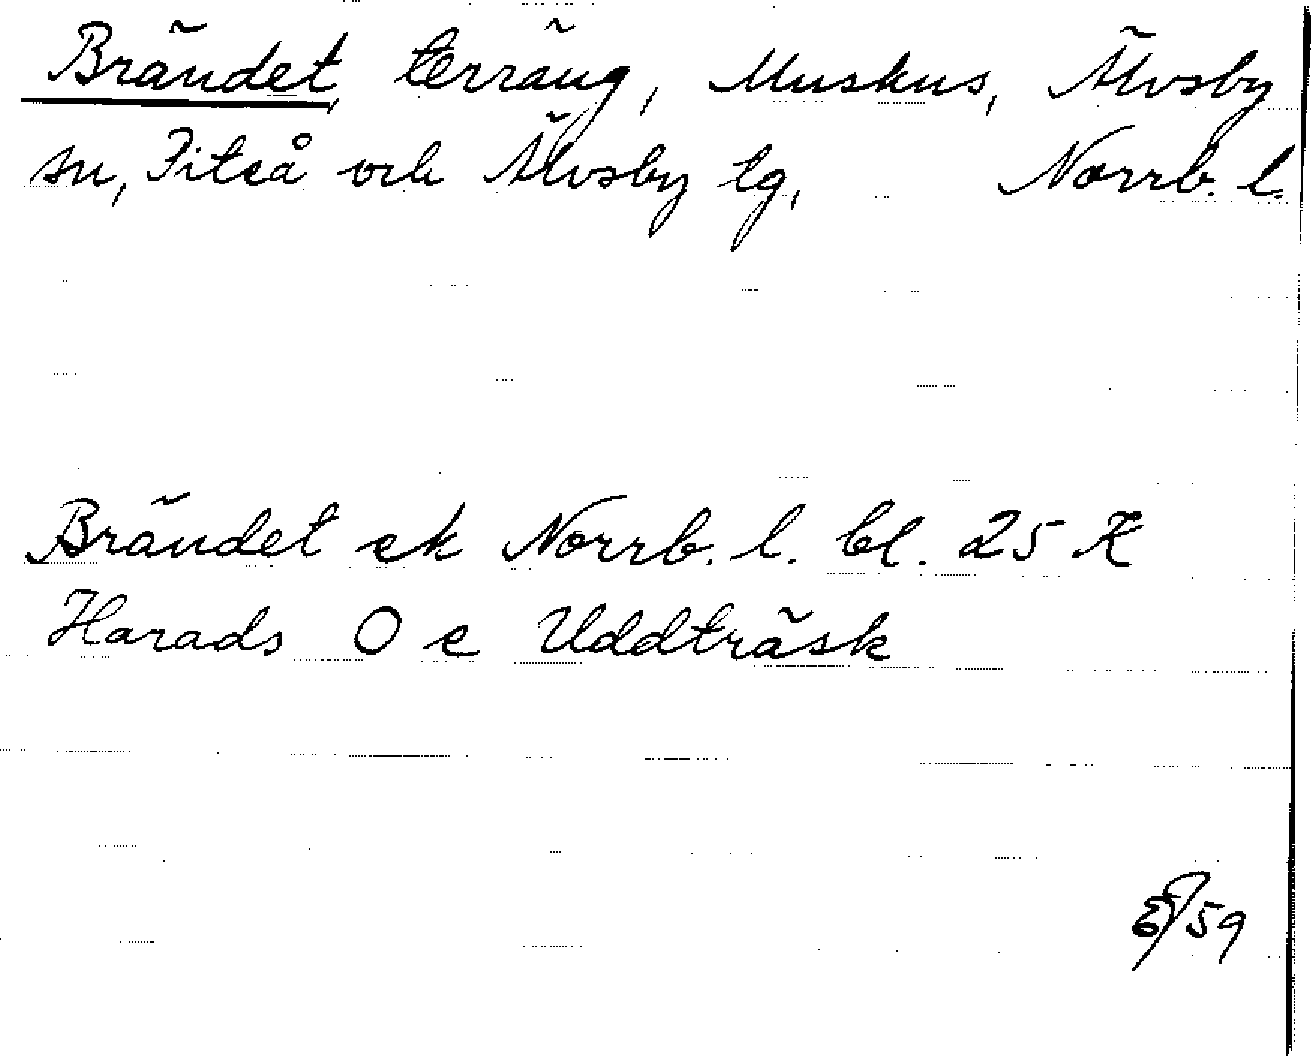 Brändet, terräng, Muskus, Älvsby
sn, Piteå och Älvsby tg, Norrb. l.
Brändet ek Norrb. l. bl. 25 K
Harads O e Uddträsk
59